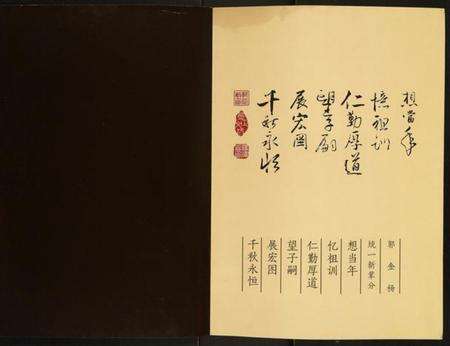 想当年
憶祖训
仁勤厚道
望子嗣
展宏图
千秋永恒
郭金扬
统一新辈分
想当年
忆祖训
仁勤厚道
望子嗣
展宏图
千秋永恒